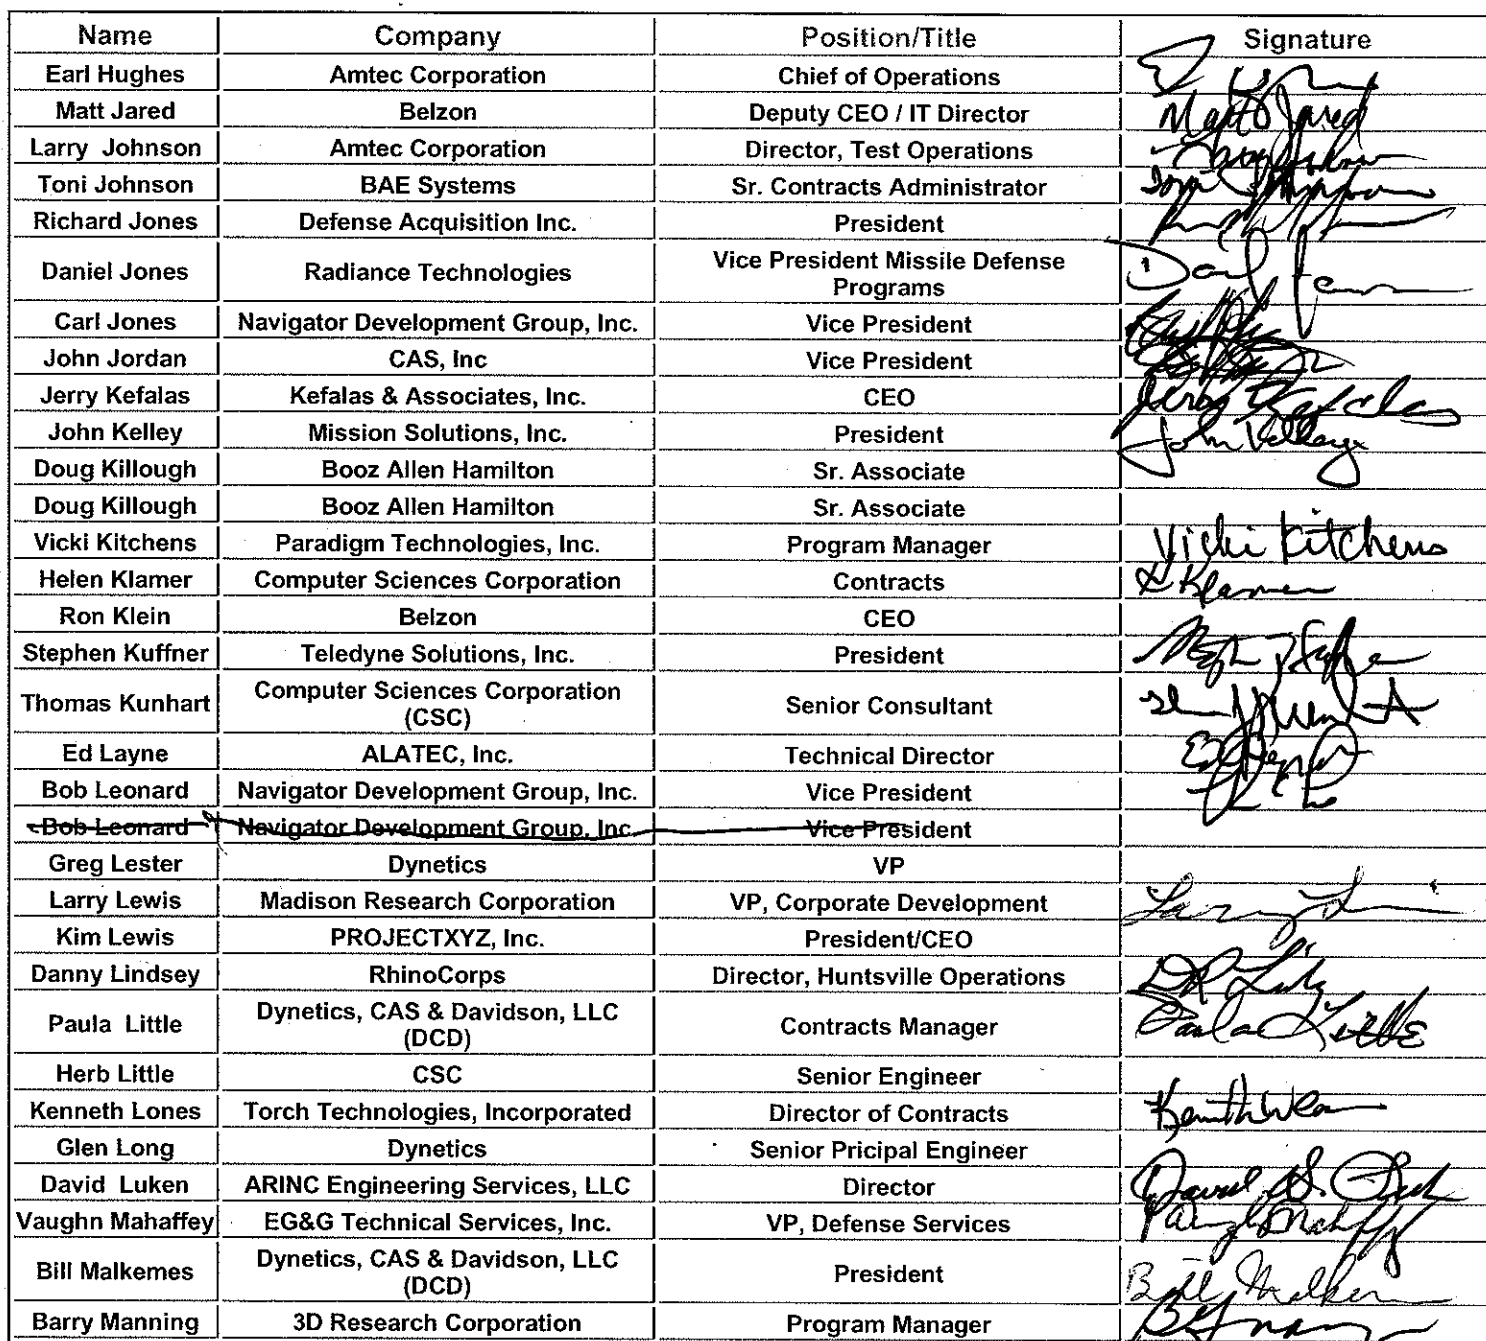 Name Company Position/Title Signature
Earl Hughes Amtec Corporation Chief of Operations
Matt Jared Belzon Deputy CEO / IT Director Matt Jared
Larry Johnson Amtec Corporation Director, Test Operations
Toni Johnson BAE Systems Sr. Contracts Administrator
Richard Jones Defense Acquisition Inc. President
Daniel Jones Radiance Technologies Vice President Missile Defense
Programs
Carl Jones Navigator Development Group, Inc. Vice President
John Jordan CAS, Inc Vice President
Jerry Kefalas Kefalas & Associates, Inc. CEO Jerry Kefalas
John Kelley Mission Solutions, Inc. President John Kelley
Doug Killough Booz Allen Hamilton Sr. Associate
Doug Killough Booz Allen Hamilton Sr. Associate
Vicki Kitchens Paradigm Technologies, Inc. Program Manager Vicki Kitchens
Helen Klamer Computer Sciences Corporation Contracts
Ron Klein Belzon CEO
Stephen Kuffner Teledyne Solutions, Inc. President
Thomas Kunhart Computer Sciences Corporation
(CSC) Senior Consultant
Ed Layne ALATEC, Inc. Technical Director
Bob Leonard Navigator Development Group, Inc. Vice President
Bob Leonard Navigator Development Group, Inc. Vice President
Greg Lester Dynetics VP
Larry Lewis Madison Research Corporation VP, Corporate Development
Kim Lewis PROJECTXYZ, Inc. President/CEO
Danny Lindsey RhinoCorps Director, Huntsville Operations
Paula Little Dynetics, CAS & Davidson, LLC
(DCD) Contracts Manager Paula Little
Herb Little CSC Senior Engineer
Kenneth Lones Torch Technologies, Incorporated Director of Contracts
Glen Long Dynetics Senior Pricipal Engineer
David Luken ARINC Engineering Services, LLC Director
Vaughn Mahaffey EG&G Technical Services, Inc. VP, Defense Services
Bill Malkemes Dynetics, CAS & Davidson, LLC
(DCD) President
Barry Manning 3D Research Corporation Program Manager